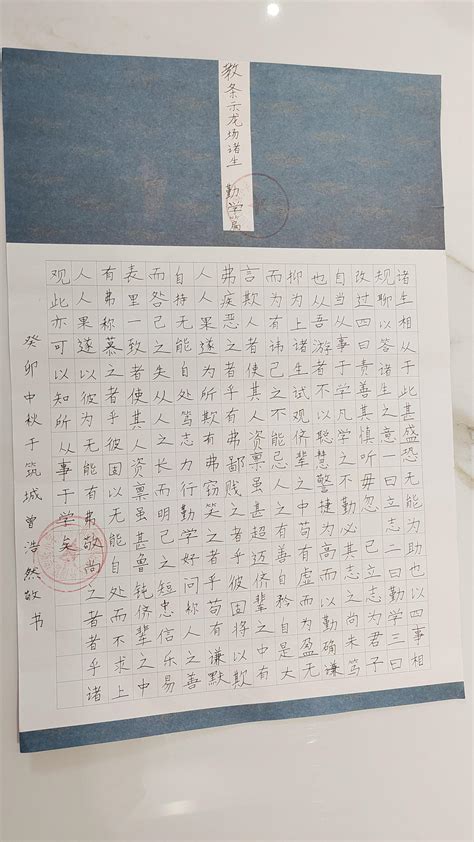 教条示龙场诸生 勤学篇
诸生相从于此甚盛恐无能为助也以四事相
规聊以答诸生之意一曰立志二曰勤学三曰
改过四曰责善其慎听毋忽 已立志为君子
自当从事于学凡学之不勤必其志之尚未笃
也从吾游者不以聪慧警捷为高而以勤确谦
抑为上诸生试观侪辈之中苟有虚而为盈无
而为有讳己之不能忌人之有善自矜自是大
言欺人者使其人资禀虽甚超迈侪辈之中有
弗疾恶之者乎有弗鄙贱之者乎彼固将以欺
人人果遂为所欺有弗窃笑之者乎苟有谦默
自持无能自处笃志力行勤学好问称人之善
而咎己之失从人之长而明己之短忠信乐易
表里一致者使其人资禀虽甚鲁钝侪辈之中
有弗称慕之者乎彼固以无能自处而不求上
人人果遂以彼为无能有弗敬尚之者者乎诸
观此亦可以知所从事于学矣
癸卯中秋于筑城曾浩然敬书